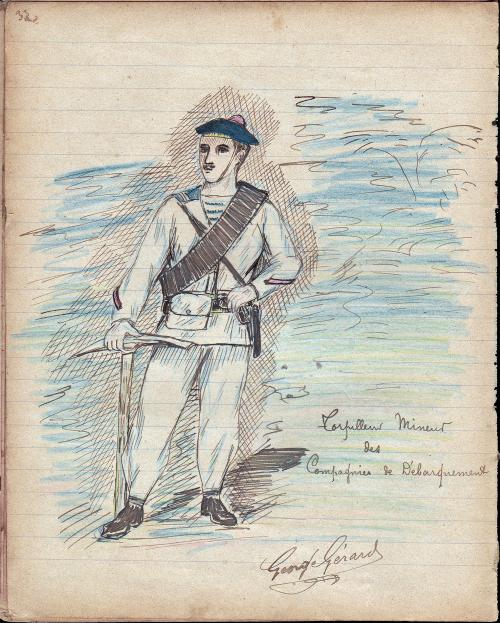 Torpilleur Mineur
des
Compagnies de Débarquement
George Gérard